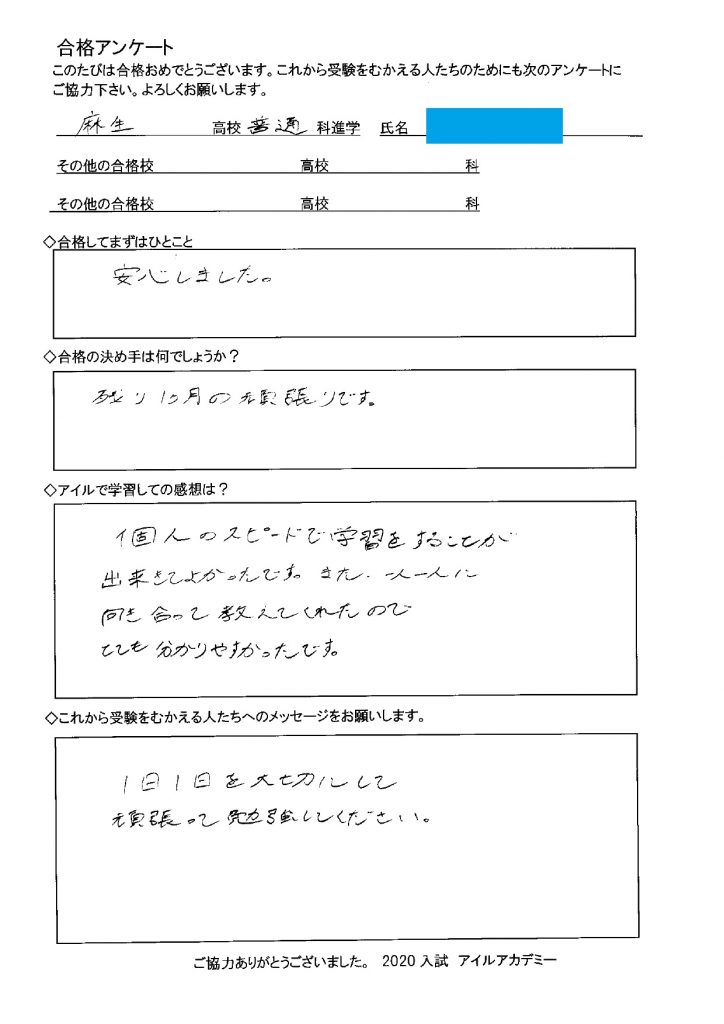 合格アンケート
このたびは合格おめでとうございます。これから受験をむかえる人たちのためにも次のアンケートに
ご協力下さい。よろしくお願いします。
麻生 高校 普通 科進学 氏名
その他の合格校 高校 科
その他の合格校 高校 科
◇合格してまずはひとこと
安心しました。
◇合格の決め手は何でしょうか？
残り1ヶ月の頑張りです。
◇アイルで学習しての感想は？
個人のスピードで学習をすることが
出来きてよかったです。また、一人一人に
向き合って教えてくれたので
とても分かりやすかったです。
◇これから受験をむかえる人たちへのメッセージをお願いします。
1日1日を大切にして
頑張って勉強してください。
ご協力ありがとうございました。 2020入試 アイルアカデミー